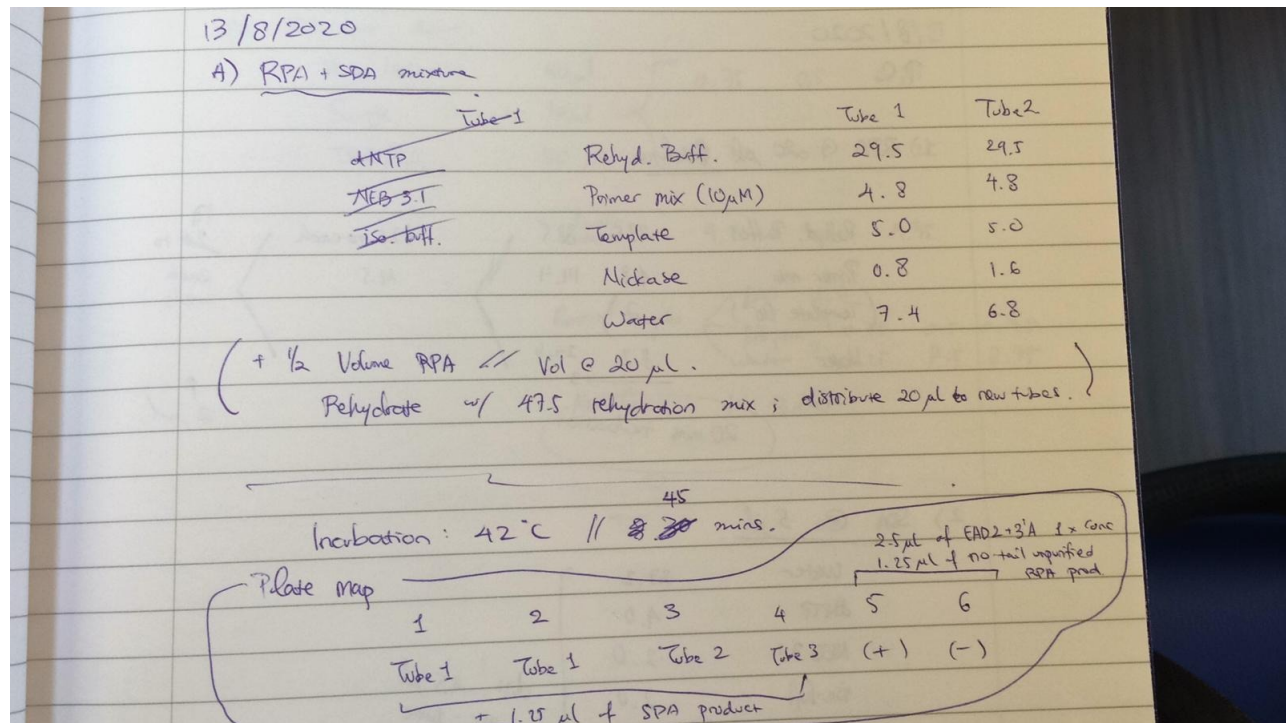 13/8/2020
A) RPA + SDA mixture
Tube 1
Tube 1 Tube 2
dNTP Rehyd. Buff. 29.5 29.5
NEB 3.1 Primer mix (10μM) 4.8 4.8
iso. buff. Template 5.0 5.0
Nickase 0.8 1.6
Water 7.4 6.8
( + 1/2 Volume RPA // Vol @ 20 μl.
Rehydrate w/ 47.5 rehydration mix ; distribute 20 μl to new tubes. )
45
Incubation : 42°C // 30 mins.
2.5 μl of EAD2+3'A 1x conc
1.25 μl of no tail unpurified
RPA prod.
Plate map
1 2 3 4 5 6
Tube 1 Tube 1 Tube 2 Tube 3 (+) (-)
+ 1.25 μl of SPA product